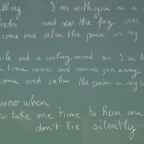 lling I'm with you in a
and see the fog
come and calm the pain in my
ile and a cooling mind or I'm
time comes and carries you away
come and calm the pain in my
know when
to take one time to hear and
don't lie silently